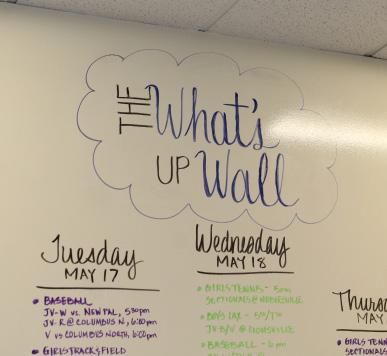 THE What's
UP Wall
Tuesday
MAY 17
• BASEBALL
JV-W vs. NEW PAL, 5:30pm
JV-R @ COLUMBUS N, 6:00pm
V vs COLUMBUS NORTH, 6:00pm
• GIRLS TRACK & FIELD
Wednesday
MAY 18
• GIRLS TENNIS - 5pm
SECTIONALS @ NOBLESVILLE
• BOYS LAX -
JV-B/V @ ZIONSVILLE
• BASEBALL - 6pm
Thursd
MAY
• GIRLS TENN
SECTIONALS